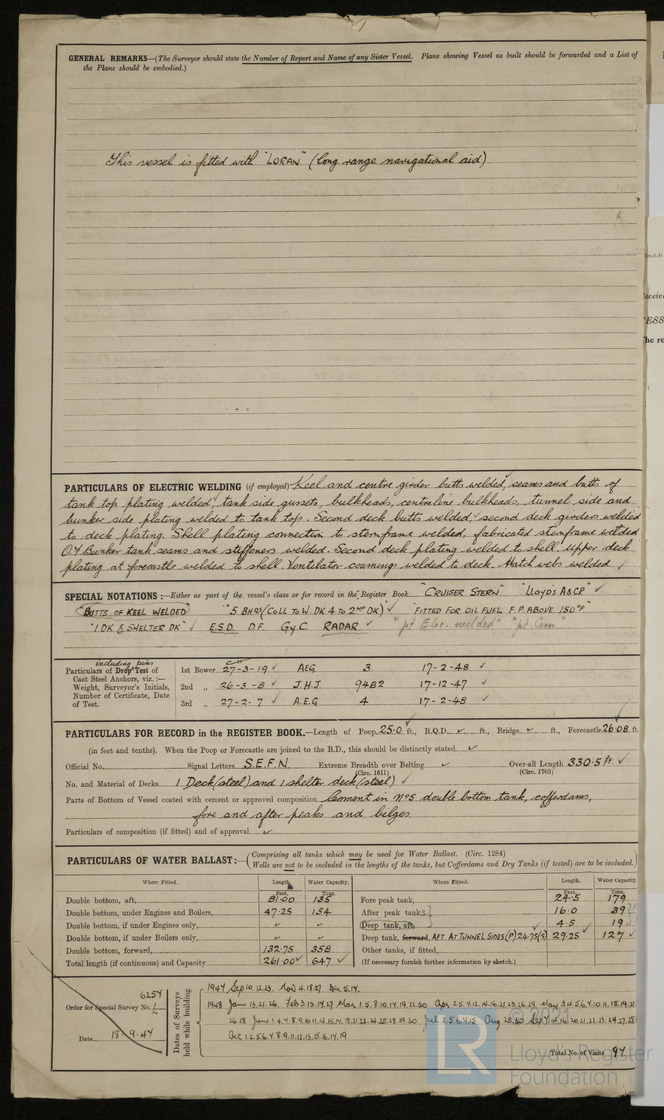 GENERAL REMARKS—(The Surveyor should state the Number of Report and Name of any Sister Vessel. Plans showing Vessel as built should be forwarded and a List of
the Plans should be embodied.)
This vessel is fitted with "LORAN" (long range navigational aid)
PARTICULARS OF ELECTRIC WELDING (if employed) Keel and centre girder butts welded, seams and butts of
tank top plating welded, tank side gussets, bulkheads, centreline bulkheads, tunnel side and
bunker side plating welded to tank top. Second deck butts welded, second deck girders welded
to deck plating. Shell plating connection to sternframe welded, fabricated sternframe welded
O.F Bunker tank seams and stiffeners welded. Second deck plating welded to shell. Upper deck
plating at forecastle welded to shell. Ventilator coamings welded to deck. Hatch webs welded ✓
SPECIAL NOTATIONS:—Either as part of the vessel's class or for record in the Register Book "CRUISER STERN" "LLOYDS A&CP" ✓
"BUTTS OF KEEL WELDED" "5 BHDS (COLL TO W. DK 4 TO 2ND DK) ✓ "FITTED FOR OIL FUEL F.P. ABOVE 150°F"
"1 DK & SHELTER DK" ✓ E.S.D. D.F. GyC RADAR ✓ "pt Elec. welded" "pt Cem"
including pins
Particulars of Drop Test of
Cast Steel Anchors, viz.:—
Weight, Surveyor's Initials,
Number of Certificate, Date
of Test.
1st Bower 27-3-19 ✓ AEG 3 17-2-48 ✓
2nd „ 26-3-8 ✓ J.H.J 9482 17-12-47 ✓
3rd „ 27-2-7 ✓ A.E.G 4 17-2-48 ✓
PARTICULARS FOR RECORD in the REGISTER BOOK.—Length of Poop 25.0 ft., R.Q.D. ✓ ft., Bridge ✓ ft., Forecastle 26.08 ft.
(in feet and tenths). When the Poop or Forecastle are joined to the B.D., this should be distinctly stated ✓
Official No. Signal Letters S.E.F.N Extreme Breadth over Belting ✓ Over-all Length 330.5 ft. ✓
(Circ. 1611) (Circ. 1703)
No. and Material of Decks 1 Deck (steel) and 1 shelter deck (steel) ✓
Parts of Bottom of Vessel coated with cement or approved composition Cement in No5 double bottom tank, cofferdams,
fore and after peaks and bilges.
Particulars of composition (if fitted) and of approval ✓
PARTICULARS OF WATER BALLAST:— (Comprising all tanks which may be used for Water Ballast. (Circ. 1284)
Wells are not to be included in the lengths of the tanks, but Cofferdams and Dry Tanks (if tested) are to be included.)
Where Fitted. Length. Water Capacity. Where Fitted. Length. Water Capacity.
Feet. Tons. Feet. Tons.
Double bottom, aft, 81.00 135 Fore peak tank, 24.5 179
Double bottom, under Engines and Boilers, 47.25 154 After peak tank, 16.0 39
Double bottom, if under Engines only, ✓ ✓ Deep tank, aft, 4.5 19
Double bottom, if under Boilers only, ✓ ✓ Deep tank, forward, AFT AT TUNNEL SIDES (P) 24.75 (S) 29.25 ✓ 127 ✓
Double bottom, forward, 132.75 358 Other tanks, if fitted,
Total length (if continuous) and Capacity 261.00 ✓ 647 ✓ (If necessary furnish further information by sketch.)
6254
Order for Special Survey No.
Date 18-9-47
Dates of Surveys
held while building
1947 Sep 10.12.23. Nov 4.18.27 Dec 5.14.
© 2021
Lloyd's Register
Foundation
LR
Total No. of Visits 94